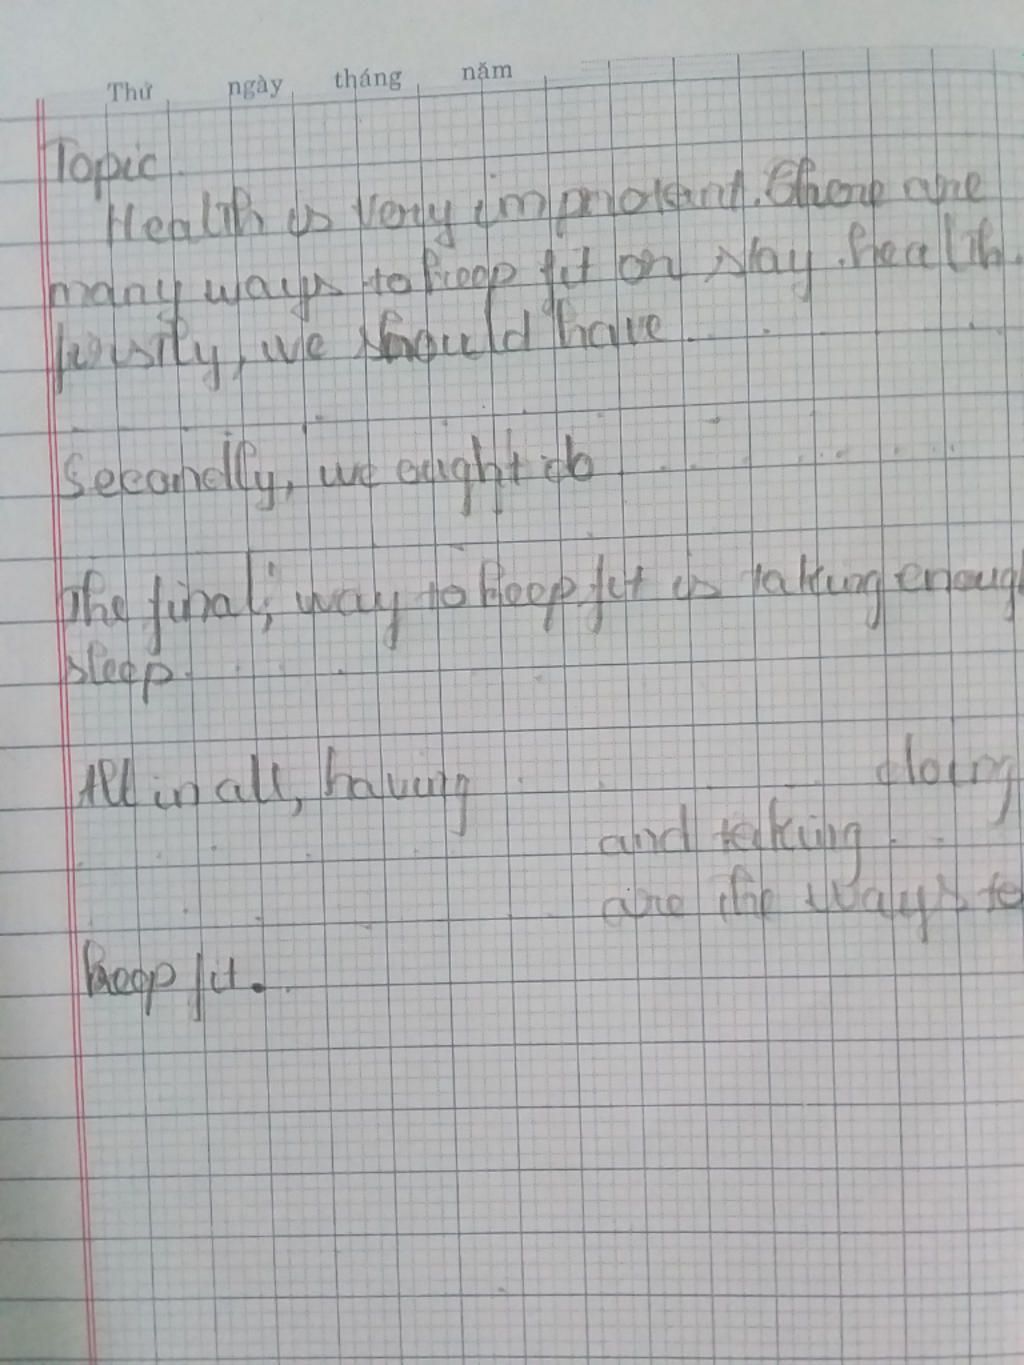 Thứ ngày tháng năm
Topic
Health is very improtant. There are
many ways to keep fit or stay health.
Firstly, we should have
Secondly, we ought do
The final, way to keep fit is taking enough
sleep.
All in all, having doing
and taking
are the ways to
keep fit.